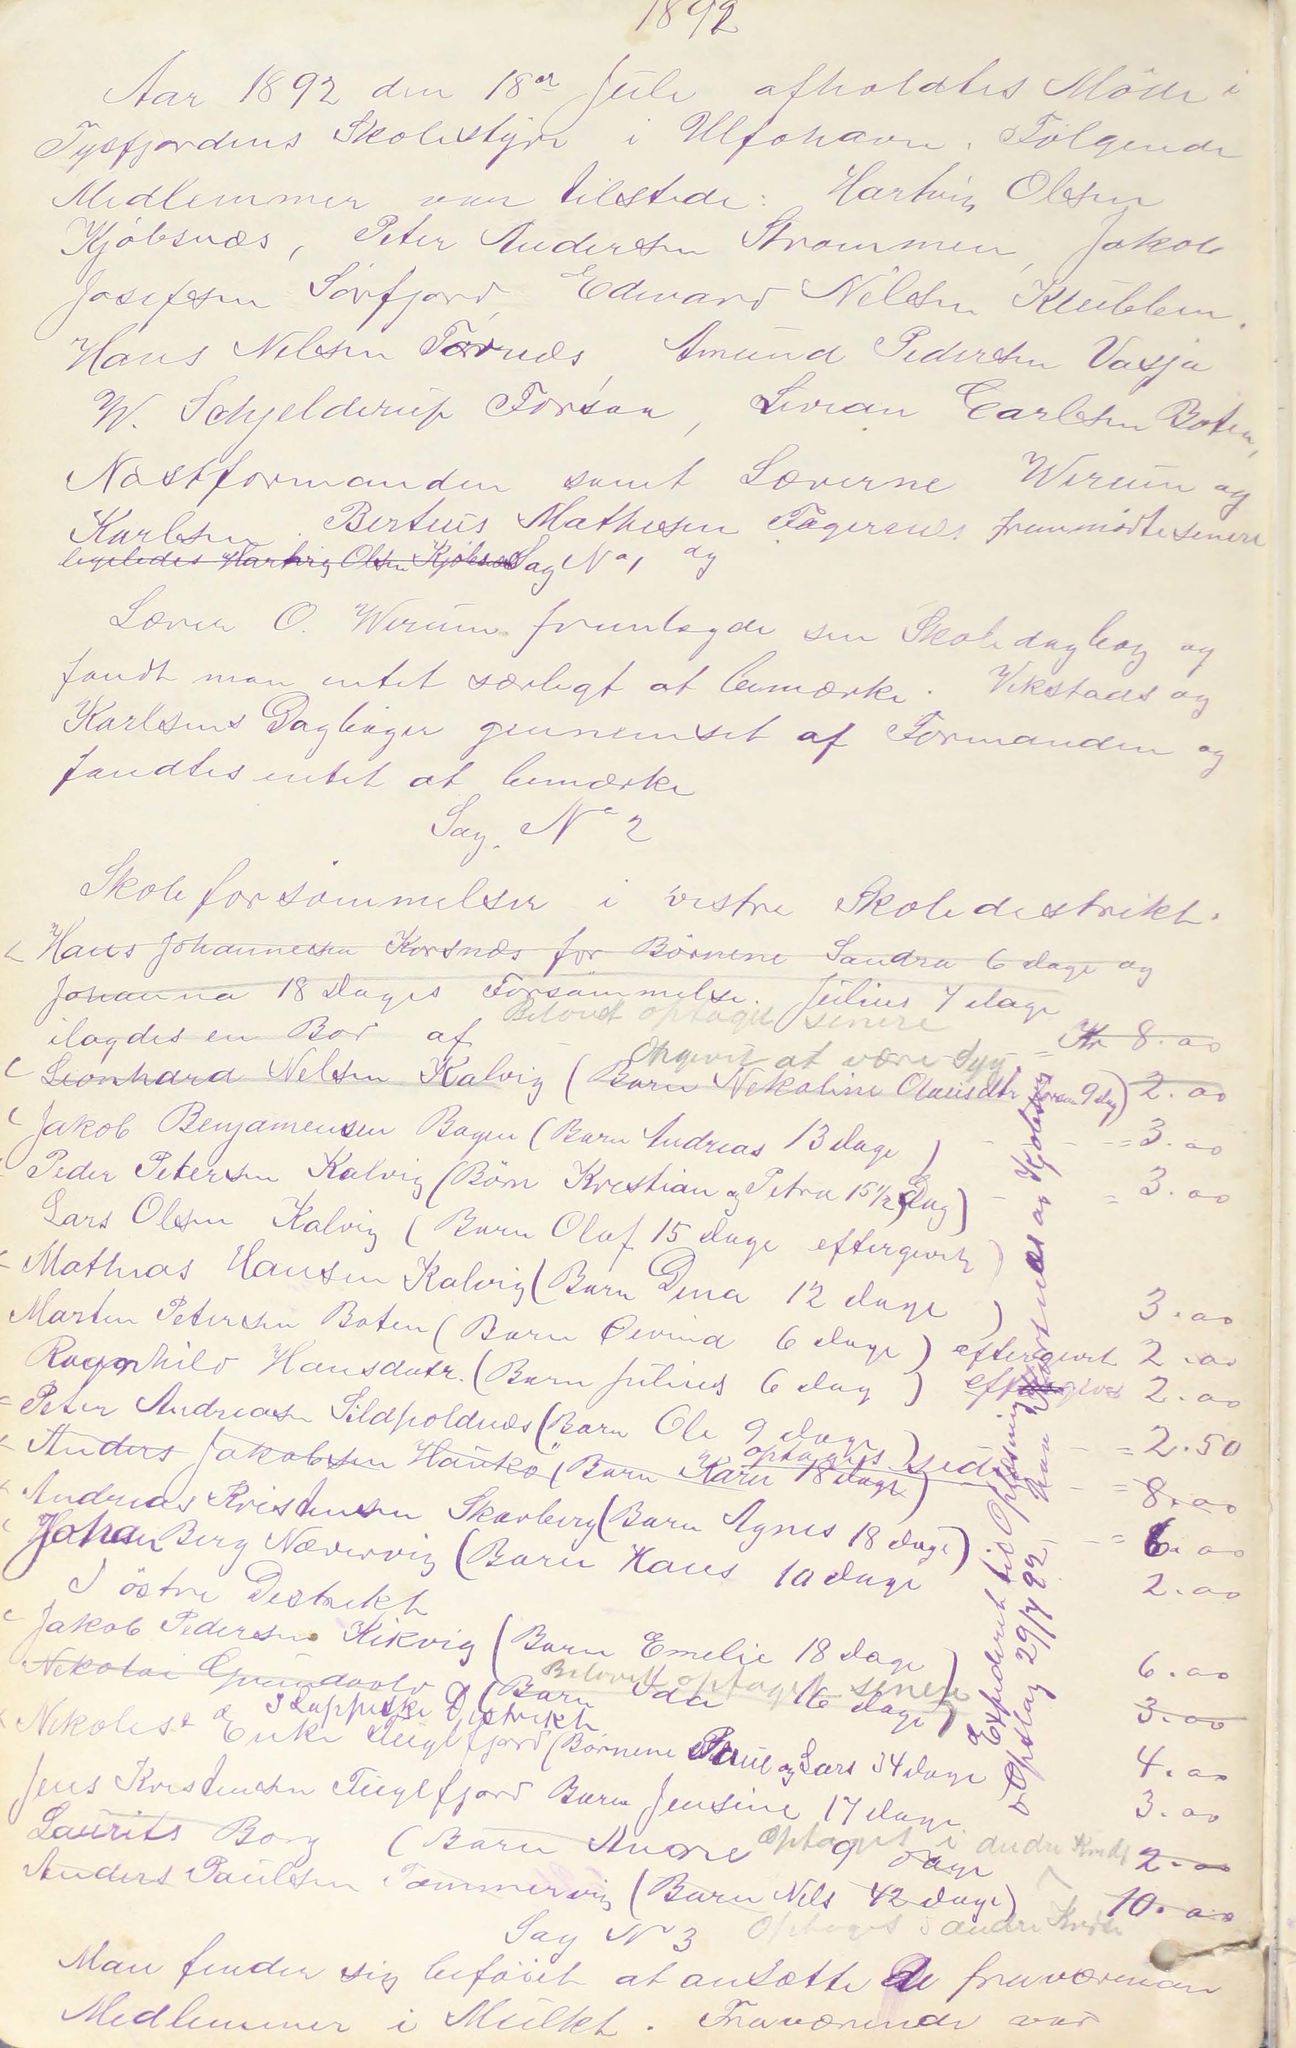 1892
Aar 1892 den 18de Juli afholdtes Möde i
Tysfjordens Skolestyre i Ulfshavn. Følgende
Medlemmer var tilstede: Hartvig Olsen
Kjöbsnæs, Peter Andersen Strömmen, Jakob
Josefsen Sörfjord, Edevard Nilsen Klubben.
Hans Nilsen Tornæs, Amund Pedersen Vasja
W. Schjelderup Forsaa, Carlsen Boten,
Næstformanden samt Lærerne Werum og
Karlsen. Bertius Mathisen Fagernæs fremmödte senere
ligeledes Hartvig Olsen Kjöbsnæs Sag No 1 og
Lærer O. Werum fremlagde sin Skoledagbog og
fandt man intet særligt at bemærke. Vikstads og
Karlsens Dagböger gennemset af Formanden og
fandtes intet at bemærke
Sag No 2
Skoleforsömmelser i vestre Skoledistrikt.
Hans Johannesen Korsnæs for Börnene Sandra 6 dage og
Johanna 18 Dages Forsömmelse. Julius 7 dage
ilagdes en Bod af Kr 8.00
Belövet optaget senere
Opgivet at være syg
Leonhard Nilsen Kalvig (Barn Nikoline Olausdtr 9 dag) 2.00
Jakob Benjamensen Bogen (Barn Andreas 13 dage) = 3.00
Peder Petersen Kalvig (Börn Kristian og Petra 15 1/2 Dag) = 3.00
Lars Olsen Kalvig (Barn Olaf 15 dage eftergivet)
Mathias Hansen Kalvig (Barn Dina 12 dage) 3.00
Martin Petersen Boten (Barn Øivind 6 dage) eftergivet 2.00
Ragnhild Hansdatr. (Barn Julius 6 dag) eftergives 2.00
Peter Andreasen Sildpoldnæs (Barn Ole 9 dage) = 2.50
Anders Jakobsen Haukö (Barn Karu 18 dage) = 8.00
optages
Andreas Kristensen Skarberg (Barn Agnes 18 dage) = 6.00
Johan Berg Nævervig (Barn Hans 10 dage 2.00
I östre Destrikt
Jakob Pedersen Kikvig (Barn Emelie 18 dage) 6.00
Belövet optaget senere
Nikolai Grundvold (Barn Oda 16 dage) 3.00
I Lappiske Distrikt
Nikolise Enke Tuglfjord (Börnene Paul og Lars 34 dage 4.00
Jens Kristensen Tuglfjord Barn Jensine 17 dage 3.00
Laurits Borg (Barn Andre 9 dage 2.00
Optaget i andre Kreds
Anders Paulsen Tömmervig (Barn Nils 42 dage) 10.00
Sag No 3 Optaget i andre Kreds
Man finder sig beföiet at ansætte de fraværende
Medlemmer i Mulkt. Fraværende var
Expederet til Oplæsning Kjöbsnæs
Opslag 29/7 92